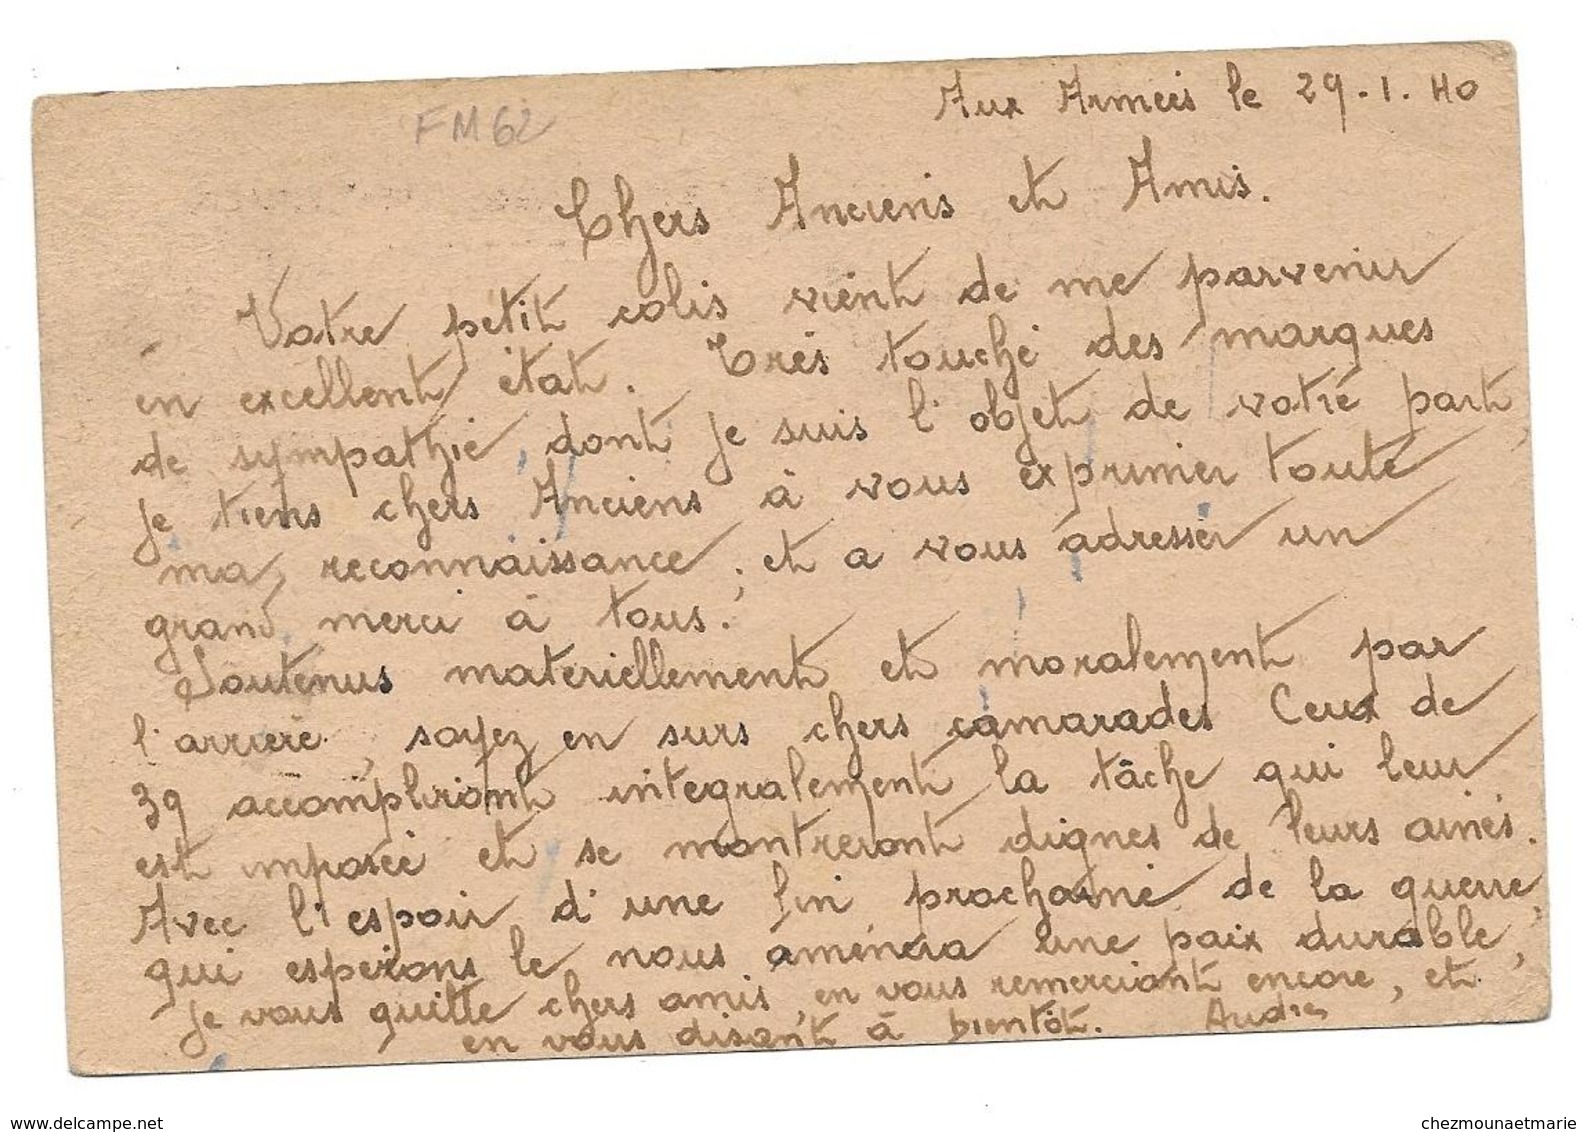 Aux Armées le 29.1.40
FM62
Chers Anciens et Amis.
Votre petit colis vient de me parvenir
en excellent état. Très touché des marques
de sympathie, dont je suis l'objet de votre part,
je tiens chers Anciens à vous exprimer toute
ma reconnaissance, et a vous adresser un
grand merci à tous.
Soutenus materiellement et moralement par
l'arrière, soyez en surs chers camarades Ceux de
39 accompliront integralement la tâche qui leur
est imposée et se montreront dignes de leurs ainés.
Avec l'espoir d'une fin prochaine de la guerre,
qui esperons le nous aménera une paix durable,
je vous quitte chers amis, en vous remerciant encore, et
en vous disant à bientôt.
delcampe.net
chezmounaetmarie